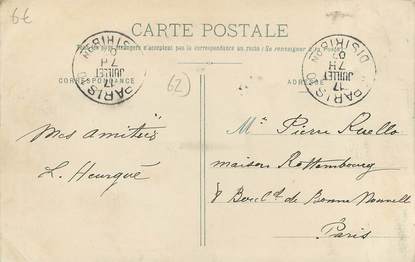 6€
CARTE POSTALE
Tous les pays étrangers n'acceptent pas la correspondance au recto. (Se renseigner à la Poste).
CORRESPONDANCE
ADRESSE
PARIS
7H
17
JUILLET
07
DISTRIBUTION
PARIS
7H
17
JUILLET
07
DISTRIBUTION
62)
Mes amitiés
L. Heurqué
Mr Pierre Ruello
maison Rottembourg
8 Boul.d de Bonne Nouvelle
Paris